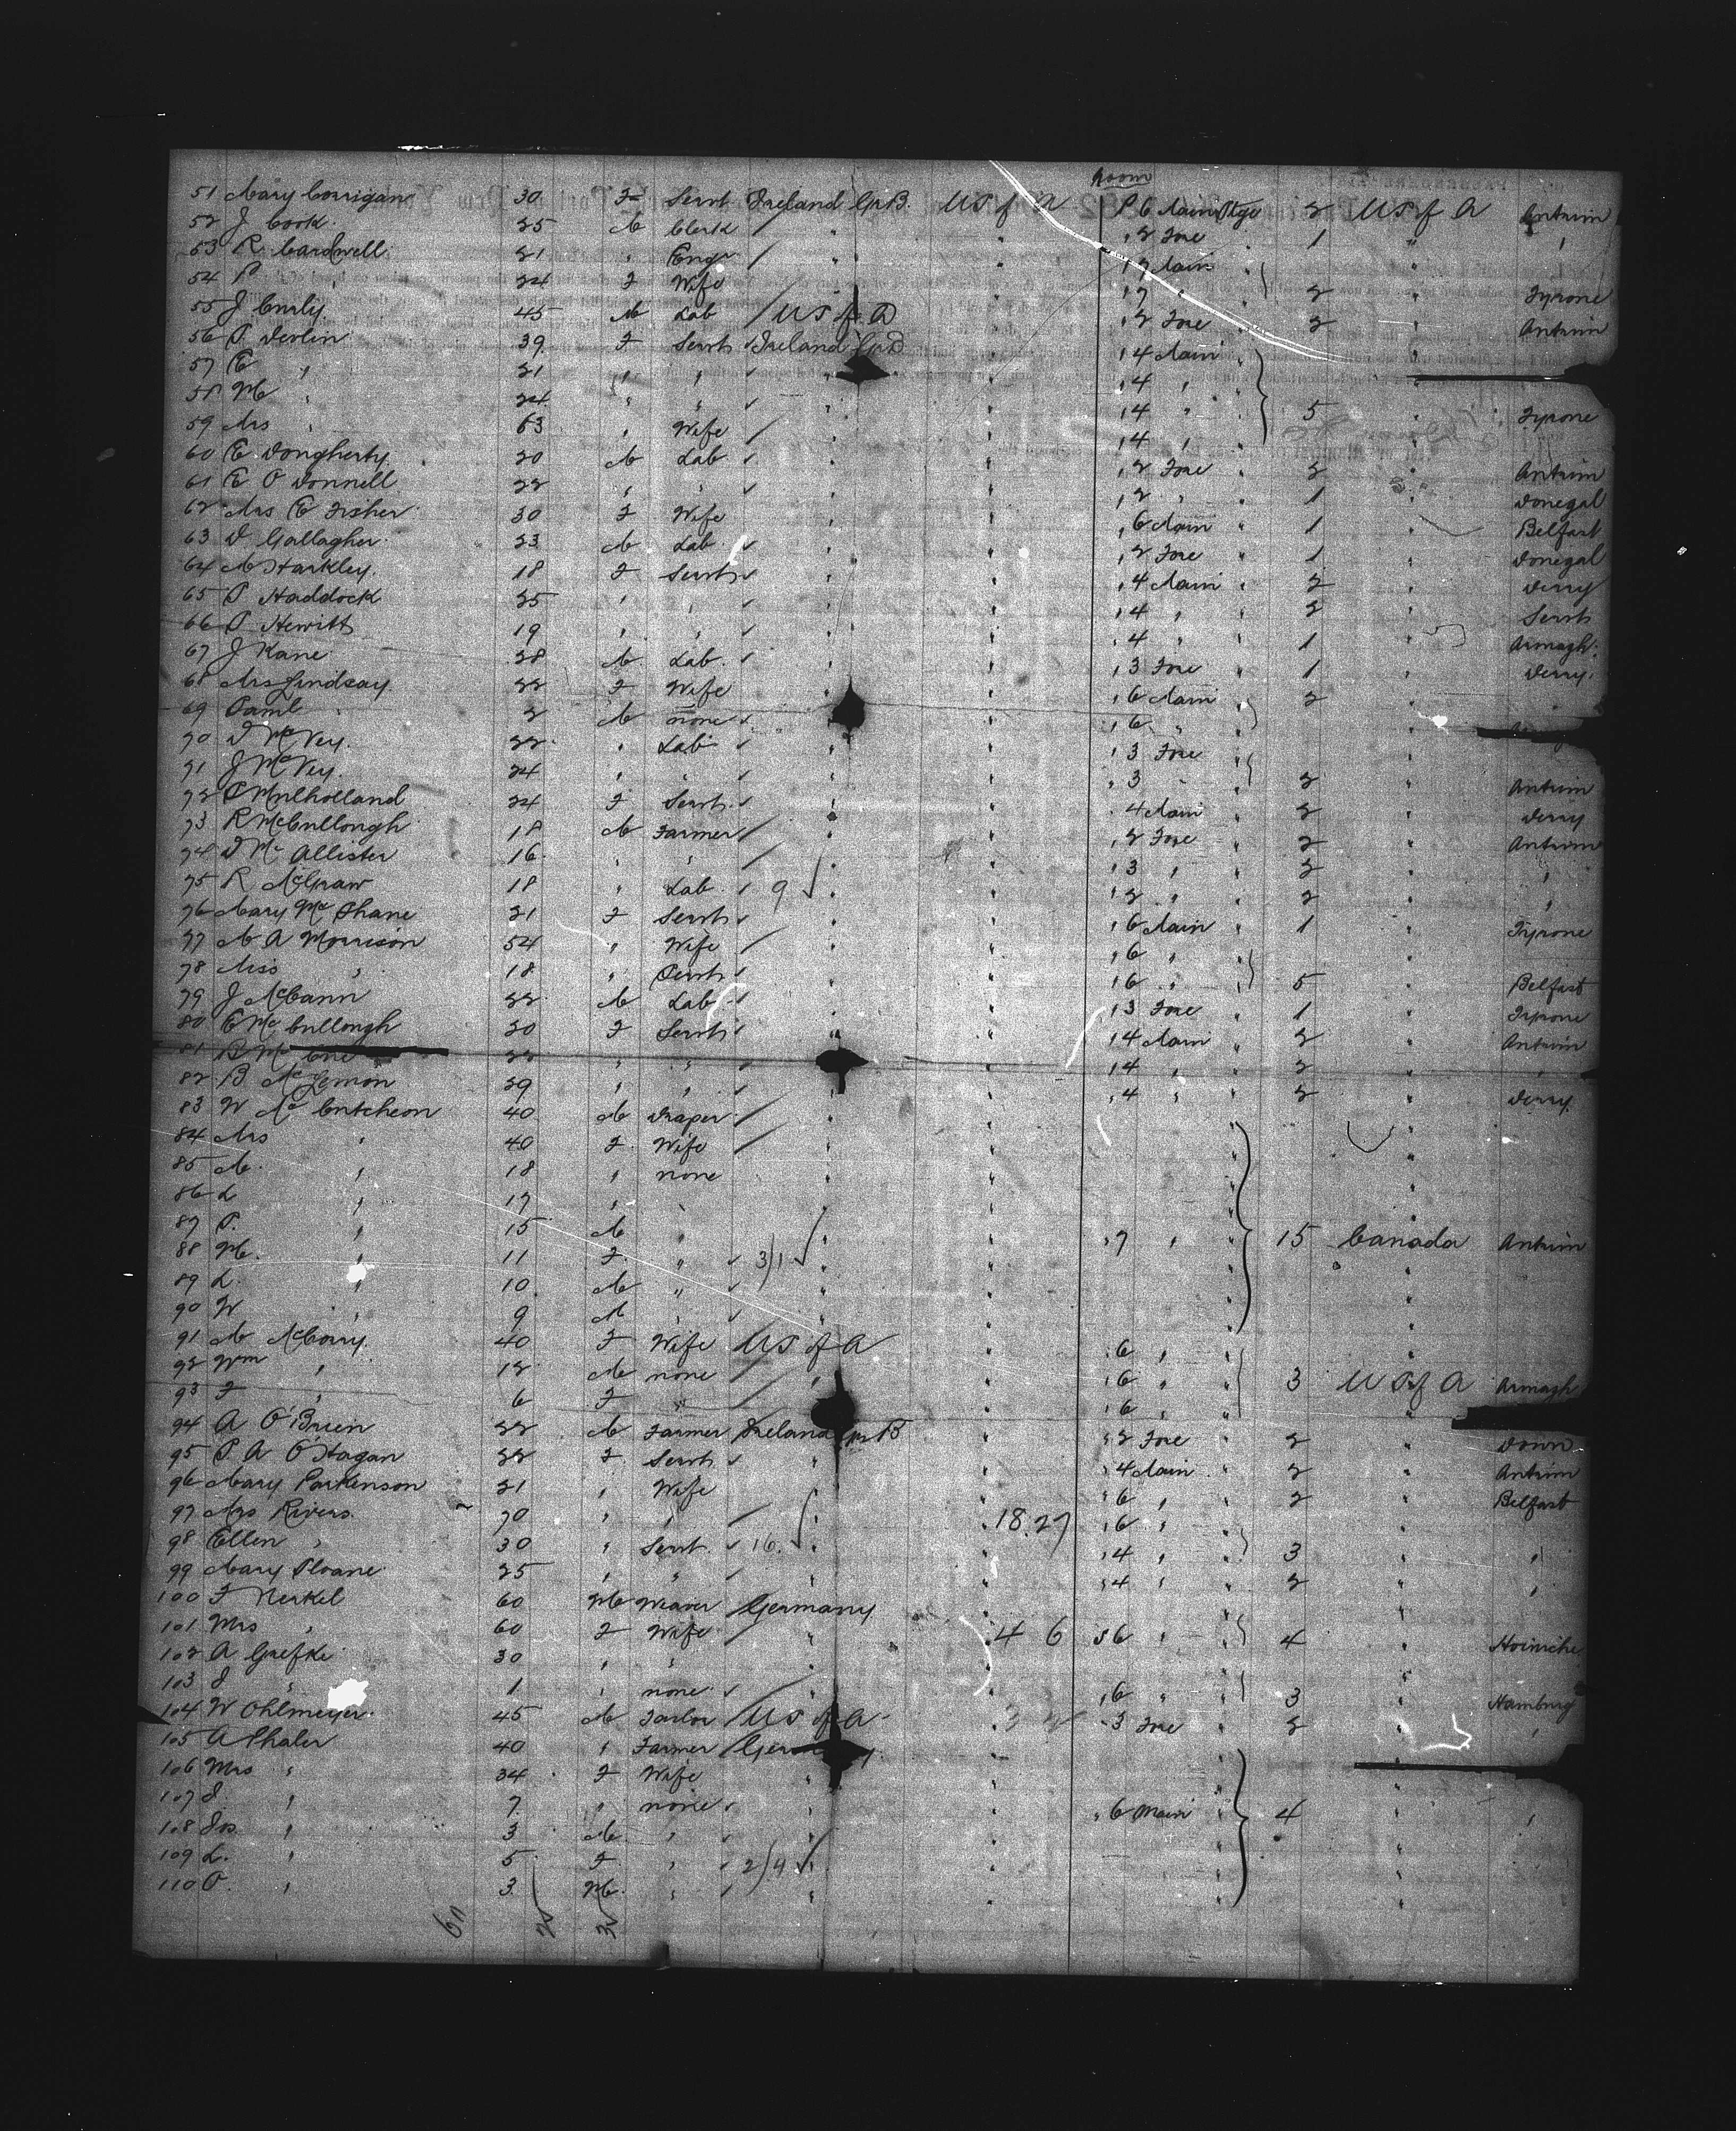 Room
51 Mary Corrigan 30 F Servt Ireland Gr B. US of A P 6 Main Stge 2 US of A Antrim
52 J Cook 25 M Clerk / " " , 2 Fore " 1 " "
53 R. Cardwell 21 " Engr / " 17 Main "
54 P " 24 F Wife " 17 " " 2 " Tyrone
55 J Curly 45 M Lab / US of A , 2 Fore " 2 " Antrim
56 P Devlin 39 F Servt Ireland Gr B 14 Main "
57 E " 21 " " " 14 "
58 M " 24 " " " 14 " " 5 " Tyrone
59 Mrs " 63 " Wife / 14 "
60 E Dougherty 20 M Lab , 2 Fore " 2 " Antrim
61 E O Donnell 22 " " 12 " " 1 " Donegal
62 Mrs E Fisher 30 F Wife , 6 Main " 1 " Belfast
63 D Gallagher 23 M Lab , 2 Fore " 1 " Donegal
64 M Harkley 18 F Servt , 4 Main " 2 " Derry
65 P Haddock 25 " " 14 " " 2 " Servt
66 P Hewitt 19 " " , 4 " 1 " Armagh
67 J Kane 28 M Lab. , 3 Fore " 1 " Derry
68 Mrs Lindsay 22 F Wife , 6 Main " 2 "
69 Saml 2 M none , 6 "
70 D McVey 22 " Lab 13 Fore
71 J McVey 24 " " , 3 " 2 " Antrim
72 C Mulholland 24 F Servt. 4 Main " 2 " Derry
73 R McCullough 18 M Farmer / , 2 Fore " 2 " Antrim
74 D Mc Allister 16 " " / 13 " 2 " "
75 R McGraw 18 " Lab. 9 12 " 2 " "
76 Mary Mc Shane 21 F Servt , 6 Main " 1 " Tyrone
77 M A Morrison 54 " Wife / , 6 "
78 Miss " 18 " Servt 16 " " 5 " Belfast
79 J McCann 22 M Lab 13 Fore 1 " Tyrone
80 E Mc Cullough 20 F Servt 14 Main " 2 " Antrim
81 B Mc 22 " " 14 " " 2 " "
82 B McLernon 29 " " , 4 " " 2 " Derry
83 W Mc Cutcheon 40 M Draper /
84 Mrs " 40 F Wife /
85 M. " 18 " none
86 L " 17 "
87 P. " 15 M " , 7 " 15 Canada Antrim
88 M. " 11 F " 3/1
89 L. " 10 M "
90 W " 9 M "
91 M McCorry 40 F Wife US of A , 6 "
92 Wm " 12 M none / 16 " 3 US of A Armagh
93 F " 6 F " / 16 "
94 A O'Brien 22 M Farmer Ireland Gr B , 2 Fore " 2 " Down
95 P A O'Hagan 22 F Servt , 4 Main " 2 " Antrim
96 Mary Parkinson 21 " Wife 16 " 2 " Belfast
97 Mrs Rivers 70 " " / 18.27 16 "
98 Ellen " 30 " Servt. 16. 14 " 3 " "
99 Mary Sloane 25 " " 14 " " 2 " "
100 F Merkel 60 M Weaver / Germany
101 Mrs " 60 F Wife / " 4 6 6 " 4 "
102 A Grefke 30 " "
103 " 1 " none / " , 6 " " 3 " Hamburg
104 W Ohlmeyer 45 M Tailor / US of A 3 Fore " 2 " "
105 A Thaler 40 " Farmer / Germany
106 Mrs " 34 F Wife "
107 " 7 " none " , 6 Main " 4 " "
108 Jos " 3 M " "
109 L. " 5 F " 2/4
110 O. " 3 M. " "